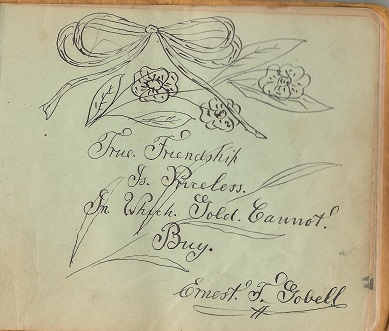 True. Friendship
Is. Priceless.
In Which. Gold. Cannot.
Buy.
Ernest. T. Gobell